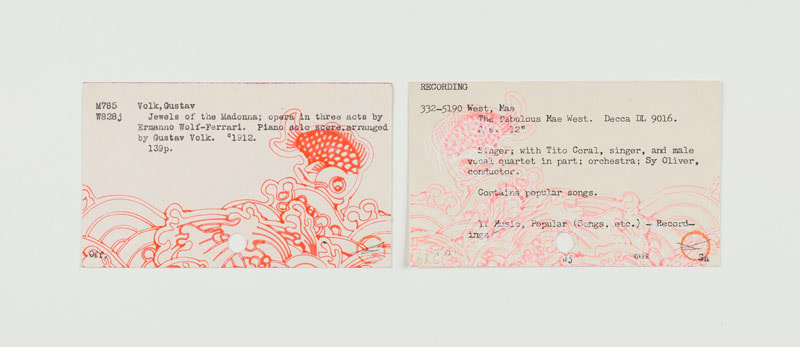 M785 Volk,Gustav
W828j Jewels of the Madonna; opera in three acts by
Ermanno Wolf-Ferrari. Piano solo score,arranged
by Gustav Volk. ©1912.
139p.
Off.
RECORDING
332-5190 West, Mae
The fabulous Mae West. Decca DL 9016.
12"
Singer; with Tito Coral, singer, and male
vocal quartet in part; orchestra; Sy Oliver,
conductor.
Contains popular songs.
1. Music, Popular (Songs, etc.) - Record-
ings